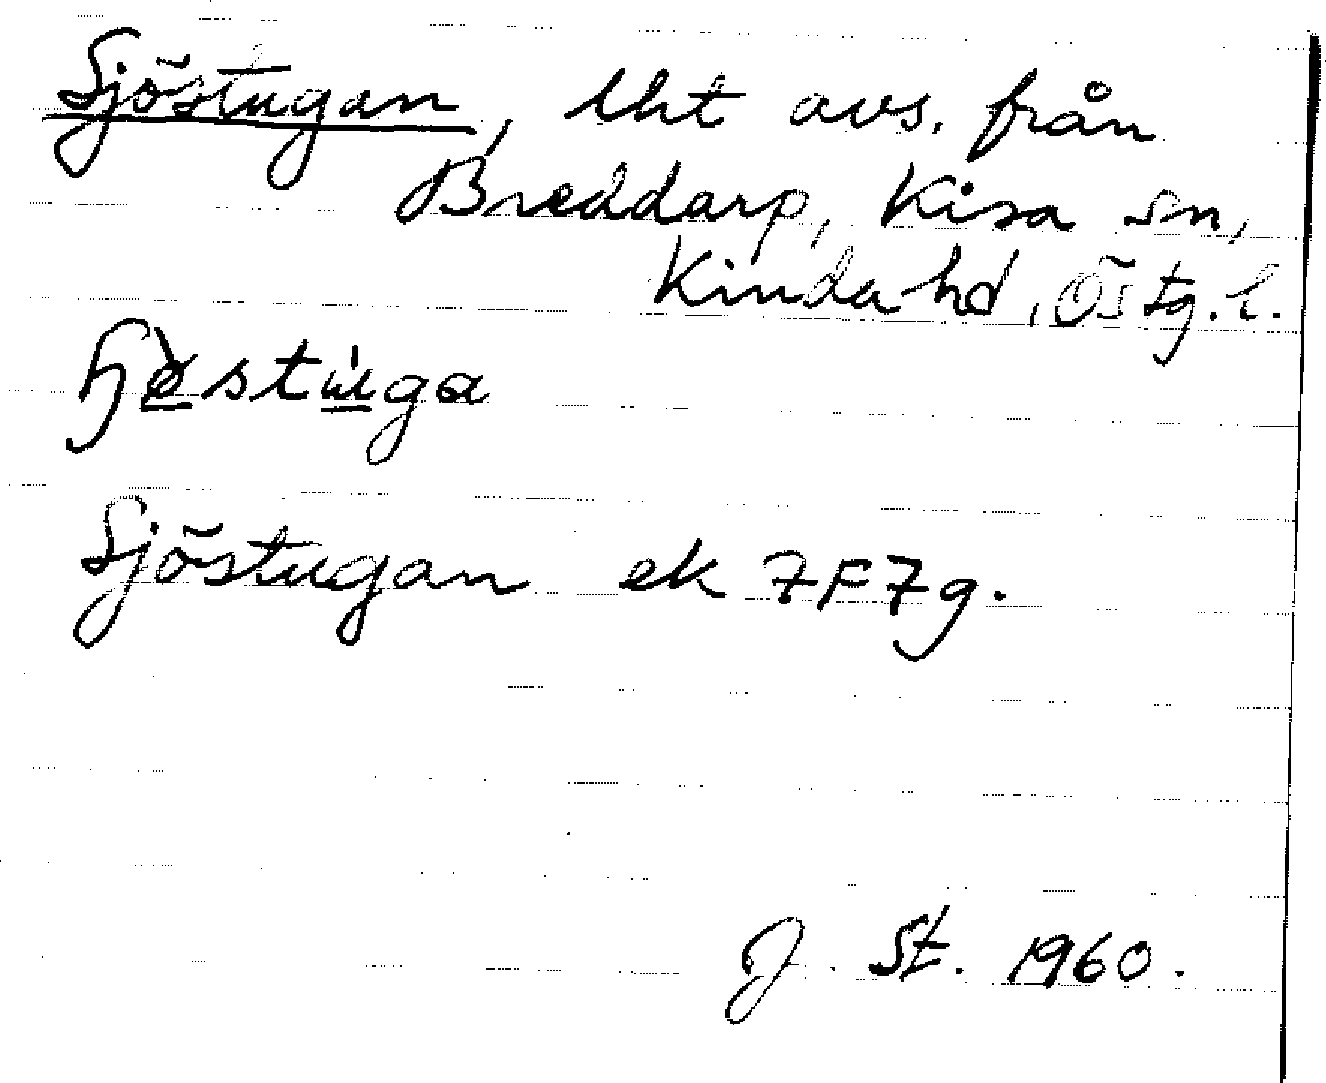 Sjöstugan, lht avs. från
Breddarp, Kisa sn,
Kinda hd, Östg. l.
ɧø̀stu̇ga
Sjöstugan ek 7F7g.
J. St. 1960.